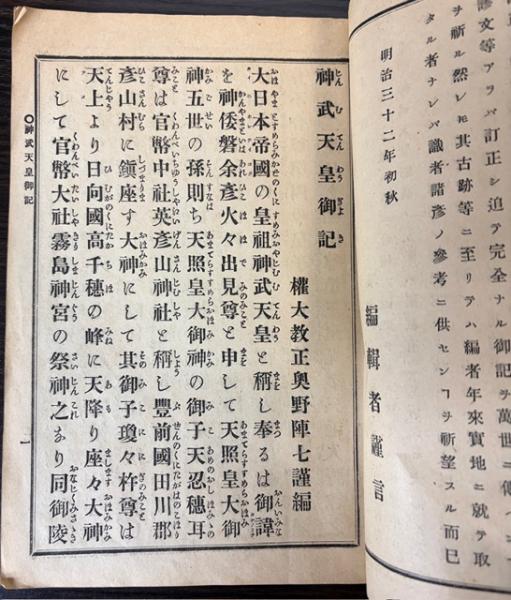 謬文等アラバ訂正シ追テ完全ナル御記ヲ萬世ニ傳
ヲ祈ル然レ𪜈其古跡等ニ至リテハ編者年來實地ニ就テ取
タル者ナレバ識者諸彦ノ參考ニ供センヿヲ祈望スル而已
明治三十二年初秋
編輯者謹言
神武天皇御記
權大教正奥野陣七謹編
大日本帝國の皇祖神武天皇と稱し奉るは御諱
を神倭磐余彦火々出見尊と申して天照皇大御
神五世の孫則ち天照皇大御神の御子天忍穗耳
尊は官幣中社英彦山神社と稱し豐前國田川郡
彦山村に鎭座す大神にして其御子瓊々杵尊は
天上より日向國高千穗の峰に天降り座々大神
にして官幣大社霧島神宮の祭神之あり同御陵
〇神武天皇御記
一